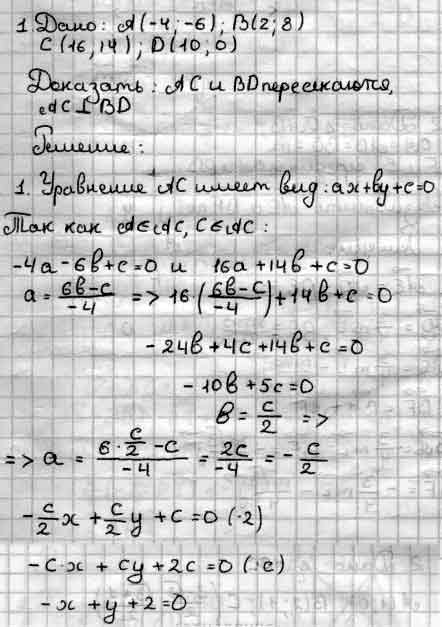 1. Дано: A(-4; -6), B(2; 8)
C(16; 14); D(10; 0)
Доказать: AC и BD пересекаются,
AC⊥BD
Решение:
1. Уравнение AC имеет вид: ax+by+c=0
Так как A∈AC, C∈AC:
-4a-6b+c=0 и 16a+14b+c=0
a = (6b-c)/-4 => 16·((6b-c)/-4)+14b+c=0
-24b+4c+14b+c=0
-10b+5c=0
b = c/2 =>
=> a = (6·c/2-c)/-4 = 2c/-4 = -c/2
-c/2 x + c/2 y + c = 0 (·2)
-c·x + cy + 2c = 0 (:c)
-x + y + 2 = 0